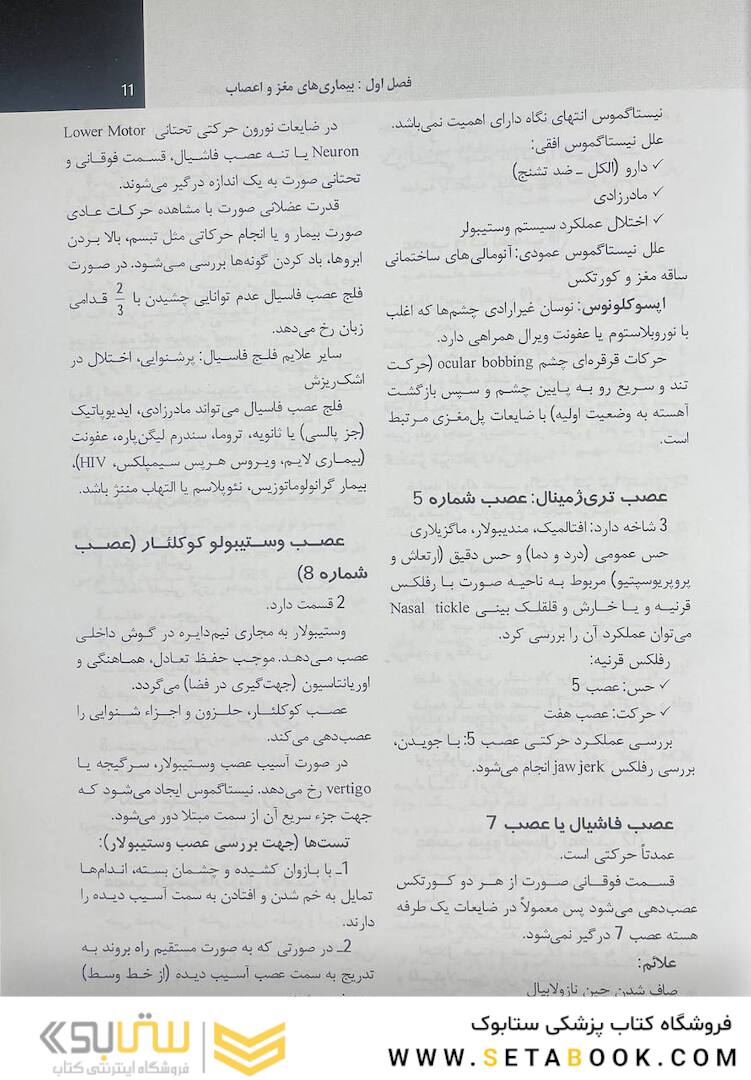 فصل اول : بیماری‌های مغز و اعصاب
11
نیستاگموس انتهای نگاه دارای اهمیت نمی‌باشد.
علل نیستاگموس افقی:
✓ دارو (الکل ـ ضد تشنج)
✓ مادرزادی
✓ اختلال عملکرد سیستم وستیبولر
علل نیستاگموس عمودی: آنومالی‌های ساختمانی
ساقه مغز و کورتکس
اپسوکلونوس: نوسان غیرارادی چشم‌ها که اغلب
با نوروبلاستوم یا عفونت ویرال همراهی دارد.
حرکات قرقره‌ای چشم ocular bobbing (حرکت
تند و سریع رو به پایین چشم و سپس بازگشت
آهسته به وضعیت اولیه) با ضایعات پل‌مغزی مرتبط
است.
عصب تری‌ژمینال: عصب شماره 5
3 شاخه دارد: افتالمیک، مندیبولار، ماگزیلاری
حس عمومی (درد و دما) و حس دقیق (ارتعاش و
پروپریوسپتیو) مربوط به ناحیه صورت با رفلکس
قرنیه و یا خارش و قلقلک بینی Nasal tickle
می‌توان عملکرد آن را بررسی کرد.
رفلکس قرنیه:
✓ حس: عصب 5
✓ حرکت: عصب هفت
بررسی عملکرد حرکتی عصب 5: با جویدن،
بررسی رفلکس jaw jerk انجام می‌شود.
عصب فاشیال یا عصب 7
عمدتاً حرکتی است.
قسمت فوقانی صورت از هر دو کورتکس
عصب‌دهی می‌شود پس معمولاً در ضایعات یک طرفه
هسته عصب 7 درگیر نمی‌شود.
علائم:
صاف شدن چین نازولابیال
در ضایعات نورون حرکتی تحتانی Lower Motor
Neuron یا تنه عصب فاشیال، قسمت فوقانی و
تحتانی صورت به یک اندازه درگیر می‌شوند.
قدرت عضلانی صورت با مشاهده حرکات عادی
صورت بیمار و یا انجام حرکاتی مثل تبسم، بالا بردن
ابروها، باد کردن گونه‌ها بررسی می‌شود. در صورت
فلج عصب فاسیال عدم توانایی چشیدن با 2/3 قدامی
زبان رخ می‌دهد.
سایر علایم فلج فاسیال: پرشنوایی، اختلال در
اشک‌ریزش
فلج عصب فاسیال می‌تواند مادرزادی، ایدیوپاتیک
(جز پالسی) یا ثانویه، تروما، سندرم لیگن‌پاره، عفونت
(بیماری لایم، ویروس هرپس سیمپلکس، HIV)،
بیمار گرانولوماتوزیس، نئوپلاسم یا التهاب مننژ باشد.
عصب وستیبولو کوکلئار (عصب
شماره 8)
2 قسمت دارد.
وستیبولار به مجاری نیم‌دایره در گوش داخلی
عصب می‌دهد. موجب حفظ تعادل، هماهنگی و
اوریانتاسیون (جهت‌گیری در فضا) می‌گردد.
عصب کوکلئار، حلزون و اجزاء شنوایی را
عصب‌دهی می‌کند.
در صورت آسیب عصب وستیبولار، سرگیجه یا
vertigo رخ می‌دهد. نیستاگموس ایجاد می‌شود که
جهت جزء سریع آن از سمت مبتلا دور می‌شود.
تست‌ها (جهت بررسی عصب وستیبولار):
1ـ با بازوان کشیده و چشمان بسته، اندام‌ها
تمایل به خم شدن و افتادن به سمت آسیب دیده را
دارند.
2ـ در صورتی که به صورت مستقیم راه بروند به
تدریج به سمت عصب آسیب دیده (از خط وسط)
فروشگاه کتاب پزشکی ستابوک
WWW.SETABOOK.COM
ستابوک
فروشگاه اینترنتی کتاب